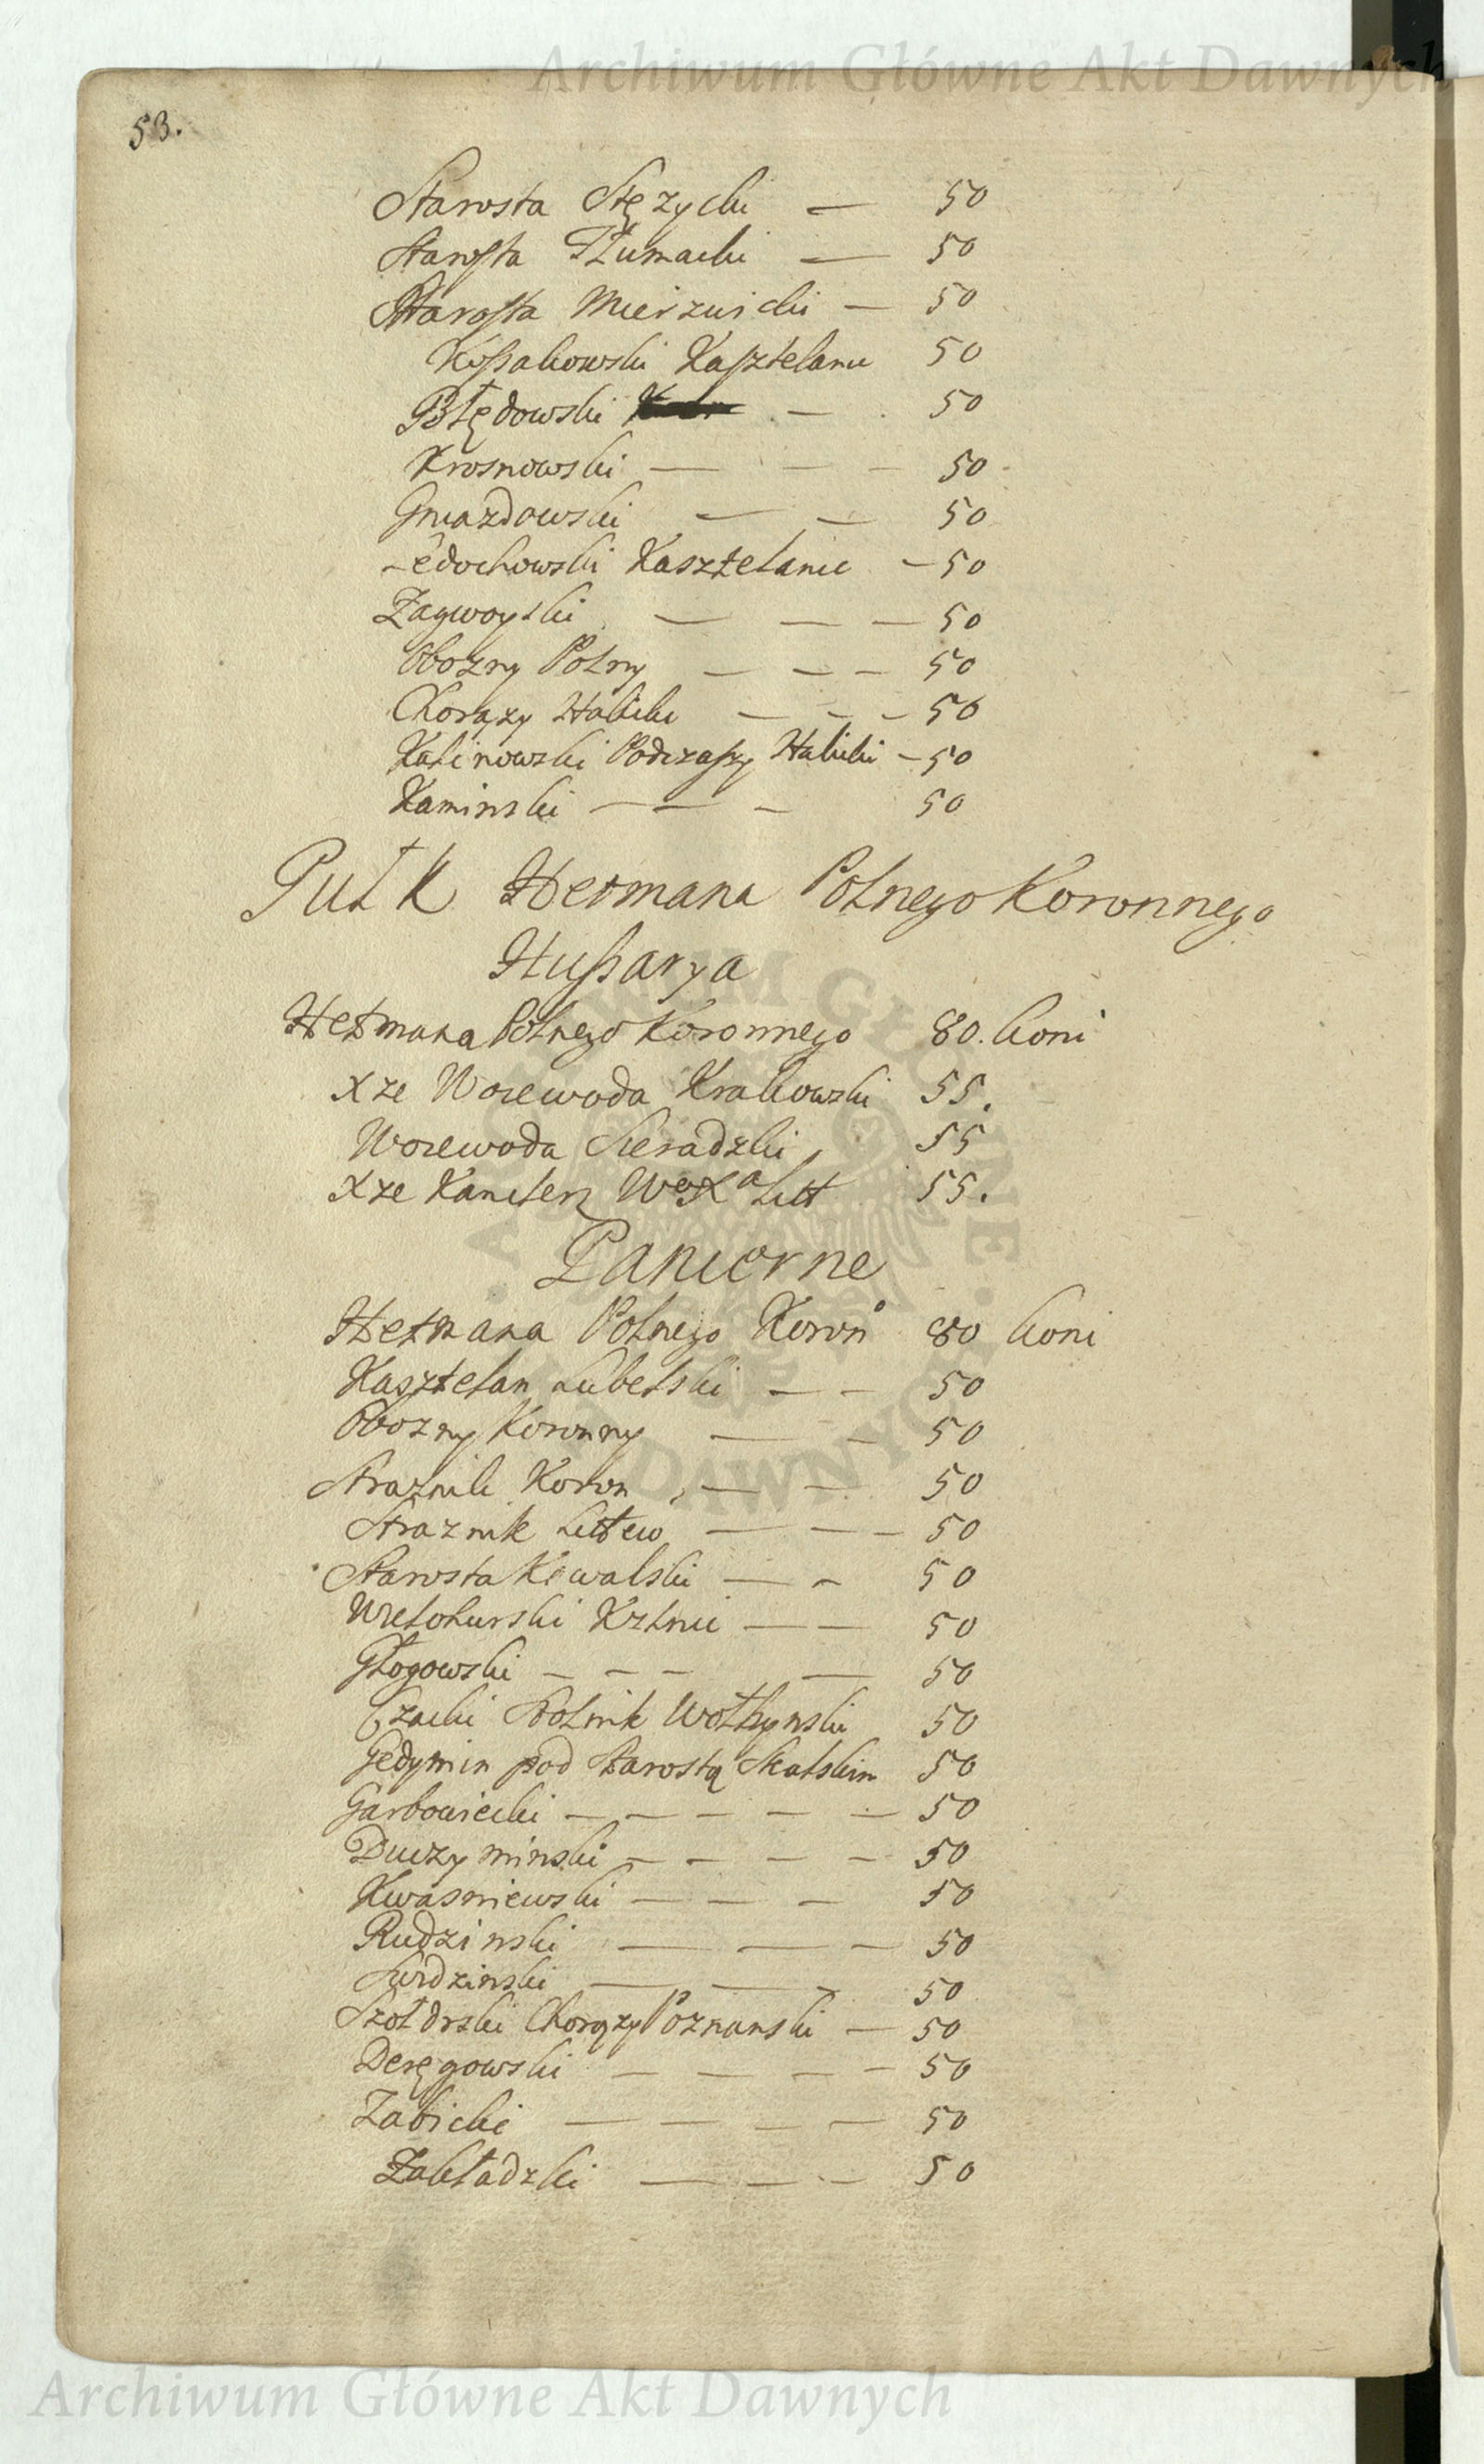 Archiwum Główne Akt Dawnych
53.
Starosta Stęzycki — 50
Starosta Tłumacki — 50
Starosta Mierzwicki — 50
Kossakowski Kasztelanic 50
Błędowski — 50
Krosnowski — — — 50
Gniazdowski — — 50
Ledochowski Kasztelanic — 50
Zagwoyski — — — 50
Obozny Polny — — — 50
Chorązy Halicki — — — 50
Kalinowski Podczaszy Halicki — 50
Kaminski — — — 50
Pułk Hetmana Polnego Koronnego
Hussarya
Hetmana Polnego Koronnego 80. koni
Xze Woiewoda Krakowski 55.
Woiewoda Sieradzki 55
Xze Kanclerz W X a Litt 55.
Pancerne
Hetmana Polnego Koron 80 koni
Kasztelan Lubelski — — 50
Obozny Koronny — — 50
Straznik Koron — — 50
Straznik Littew — — — 50
Starosta Kowalski — — 50
Wielohurski Krztnic — — 50
Głogowski — — — — 50
Czacki Stolnik Wołhynski 50
Gedymin pod Starostą Skalskim 50
Garbowiecki — — — — — 50
Duczyminski — — — — 50
Kwasniewski — — — 50
Rudzinski — — — 50
Surdzinski — — — 50
Szołdrski Chorązy Poznanski — 50
Deręgowski — — — — 50
Zabicki — — — — 50
Zabładzki — — — 50
ARCHIWUM GŁÓWNE AKT DAWNYCH
Archiwum Główne Akt Dawnych